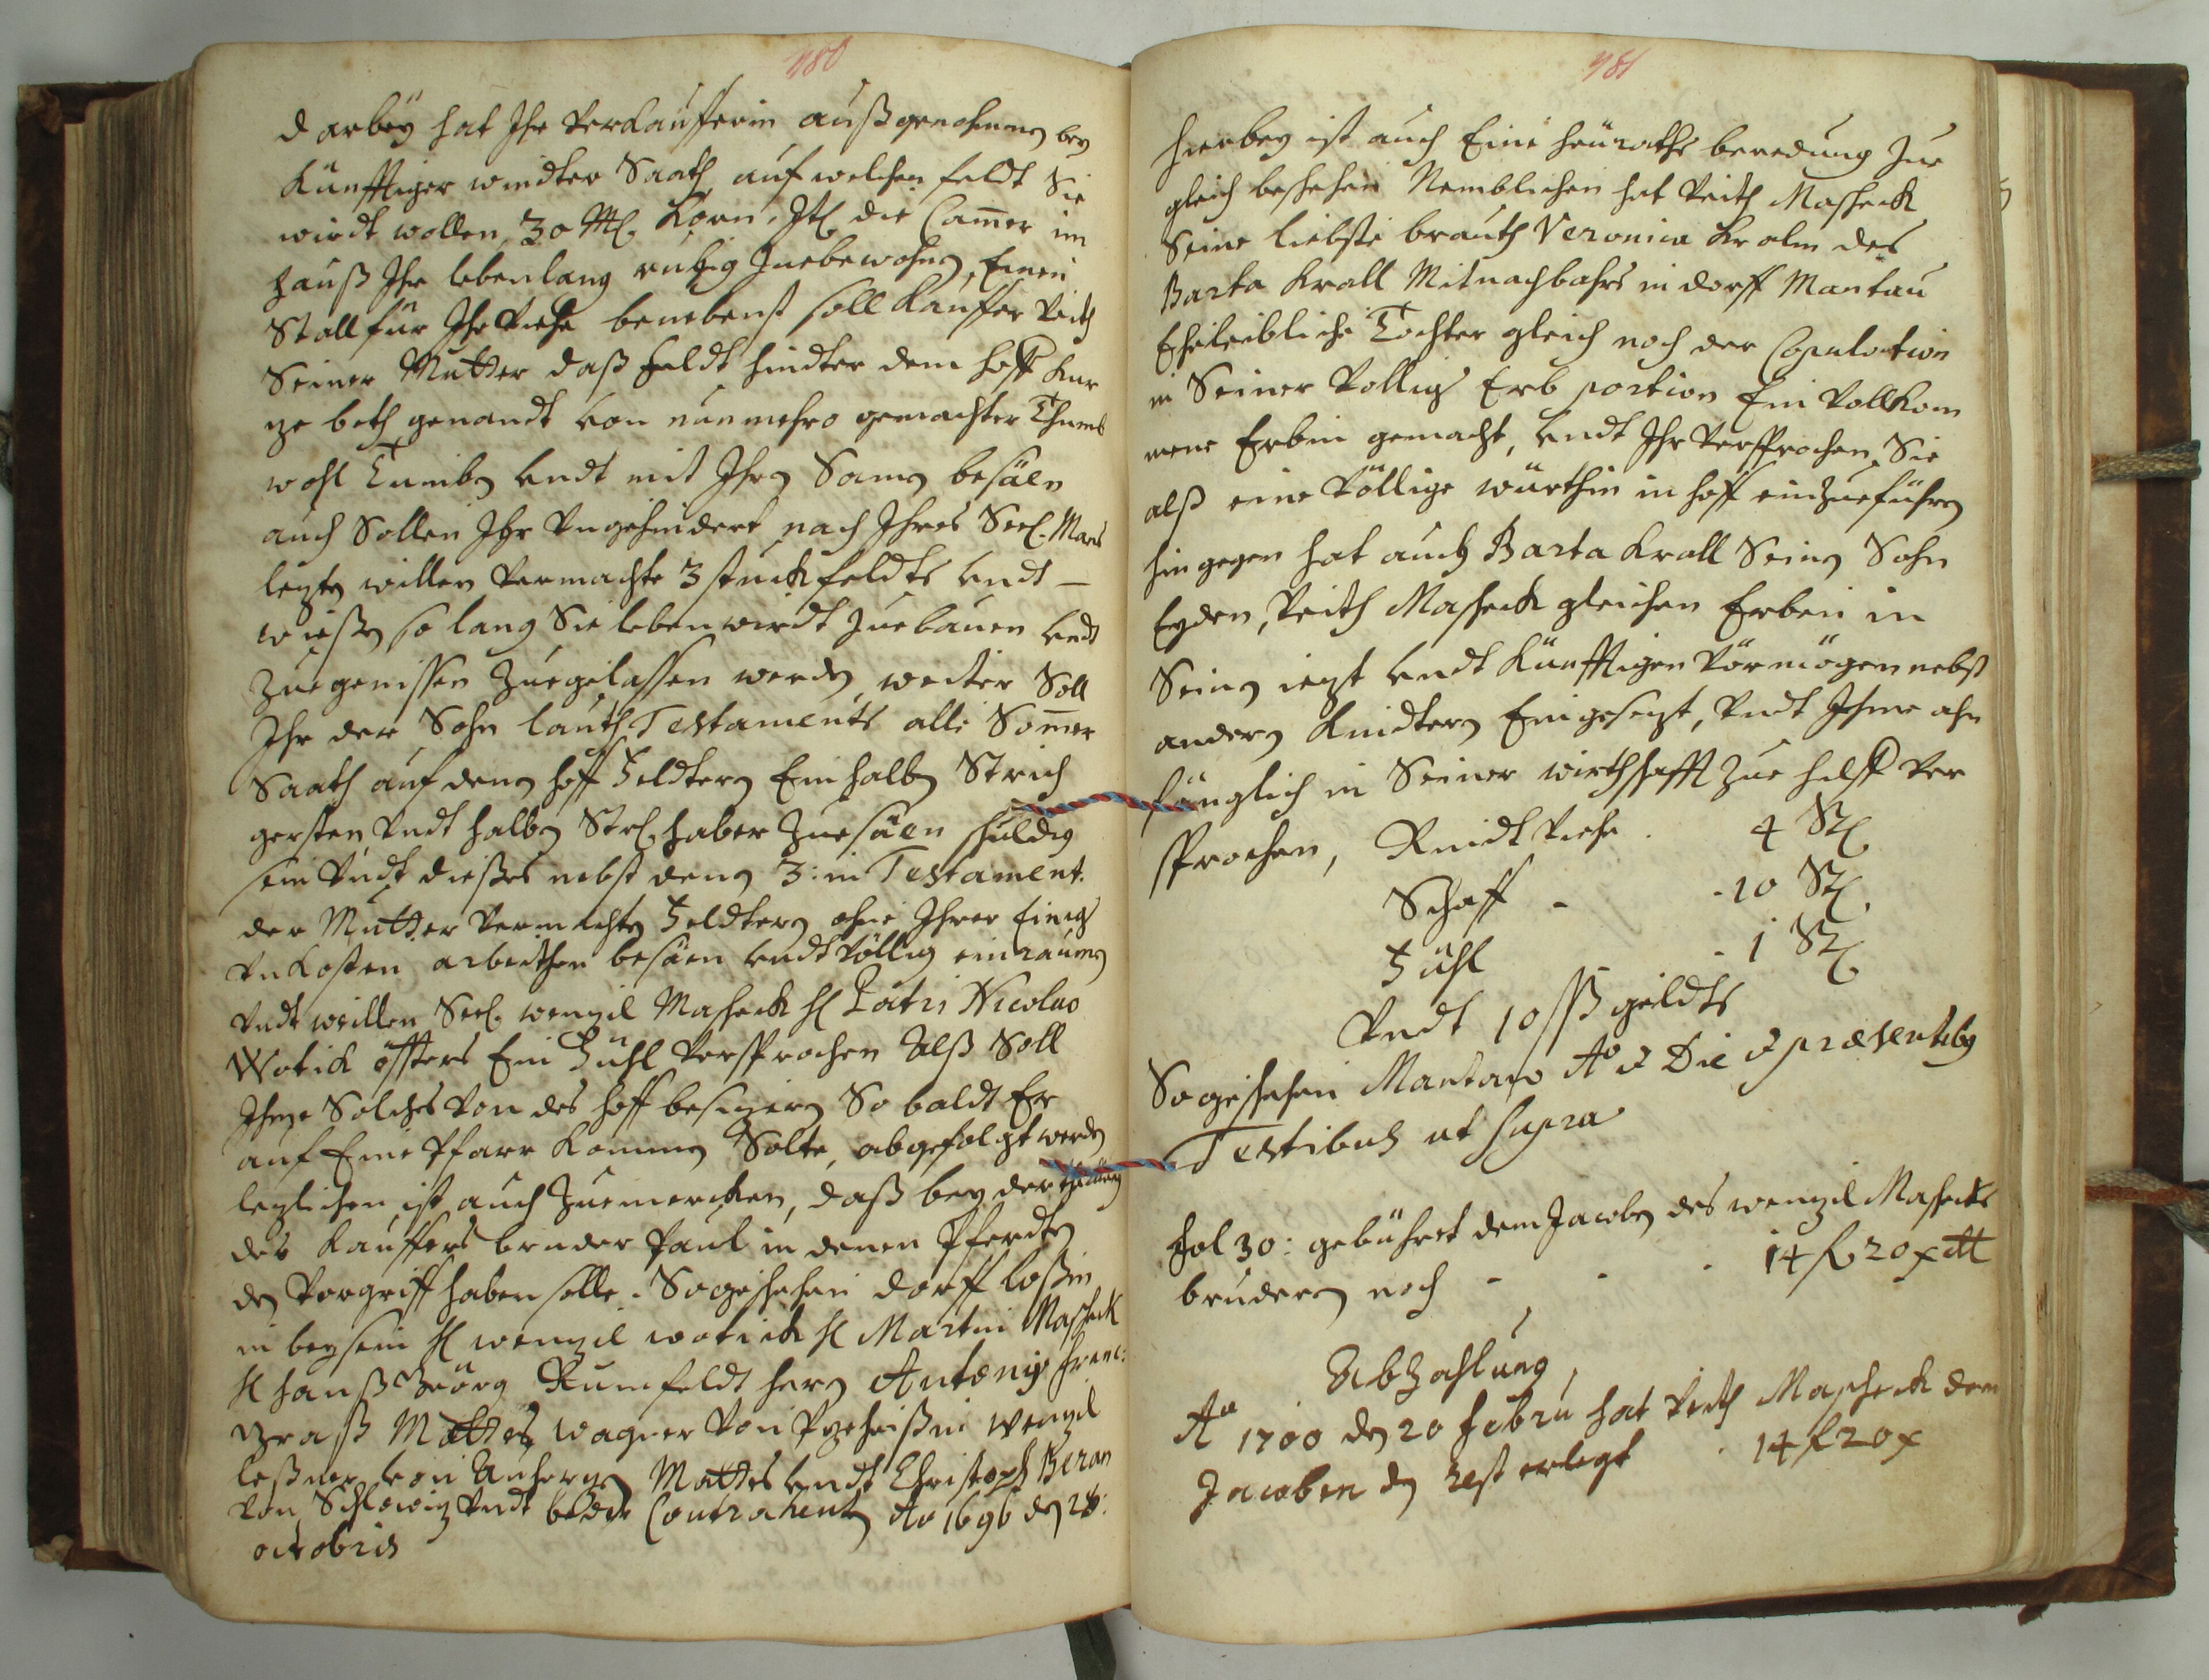 480
darbey hat Ihr verkaufferin außgenohmen bey
Künfftiger windter Saath auf welchen feldt Sie
wirdt wollen, 30 Ml. Korn, Itl. die Cam̄er im
hauß Ihr lebenlang ruhig Zuebewohnen, Einen
Stall für Ihr Viehe benebenst soll Kauffer Veith
Seiner Mutter daß feldt hindter dem hoff Kur
ze beth genandt von nunmehro gemachter
wohl undt mit Ihren Samen besäen
auch Sollen Ihr Ungehindert nach Ihres Seel. Mans
lezten willen vermachte 3 stuck feldts undt
wießen so lang Sie leben wirdt Zuebauen undt
Zuegenissen Zuegelassen werden, weiter Soll
Ihr der Sohn lauth Testaments alle Som̄er
Saath auf denen hoff Feldtern Ein halben Strich
gersten Undt halben Strl. haber Zuesäen schuldig
sein Undt dießes nebst denen 3: in Testament.
der Mutter vermachten Feldtern ohne Ihrer Einig
Unkosten arbeithen besäen undt völlig einraumen
Undt weillen Seel. wenzel Mascheck H Patri Nicolao
Wotick öffters Ein Fühl versprochen Alß Soll
Ihme Solches von des hoff besizern So baldt Er
auf Eine Pfarr Kommen Solte, abgefolgt werden
lezlichen ist auch Zuemercken, daß bey der
des Kauffers bruder Paul in denen Pferdten
den vorgriff haben solle. So geschehen dorff loßin
in beysein H wenzel wotick H Martin Mascheck
H Hanß Georg Rumfeldt herrn Antonij Franc:
Graß Mattes Wagner von wenzl
leßner von Mattes undt Christoph Beran
von Undt bede Contrahenten Ao 1696 den 28:
octobris
481
hierbey ist auch Eine heuraths beredung Zue
gleich beschehen Nemblichen hat Veith Mascheck
Seine liebste brauth Veronica Kralin des
Barta Krall Mitnachbahrs in dorff Mantau
Eheleibliche Tochter gleich nach der Copulation
in Seiner völligen Erb portion Ein vollkom
mene Erbin gemacht, undt Ihr versprochen, Sie
alß eine völlige würthin in hoff einzueführen
hingegen hat auch Barta Krall Seinen Sohn
Eyden, Veith Mascheck gleichen Erben in
Seinen iezt undt Künfftigen Vörmögen nebst
andern Kindtern Eingesezt, Undt Ihme ahn
fänglich in Seiner wirthschafft Zue hilff ver
sprochen, Rindt Viehe . 4 St.
Schaff - - 10 St.
Fühl - 1 St.
Undt 10 ßß geldts
So geschehen Mantaw Ao & Die & præsentibus
Testibus ut supra
Fol 30: gebühret dem Jacoben des wenzel Maschecks
brudern noch - - - 14 f 20 x
Abzahlung
Ao 1700 den 20 Febru hat Veith Mascheck dem
Jacoben den rest erlegt . 14 f 20 x